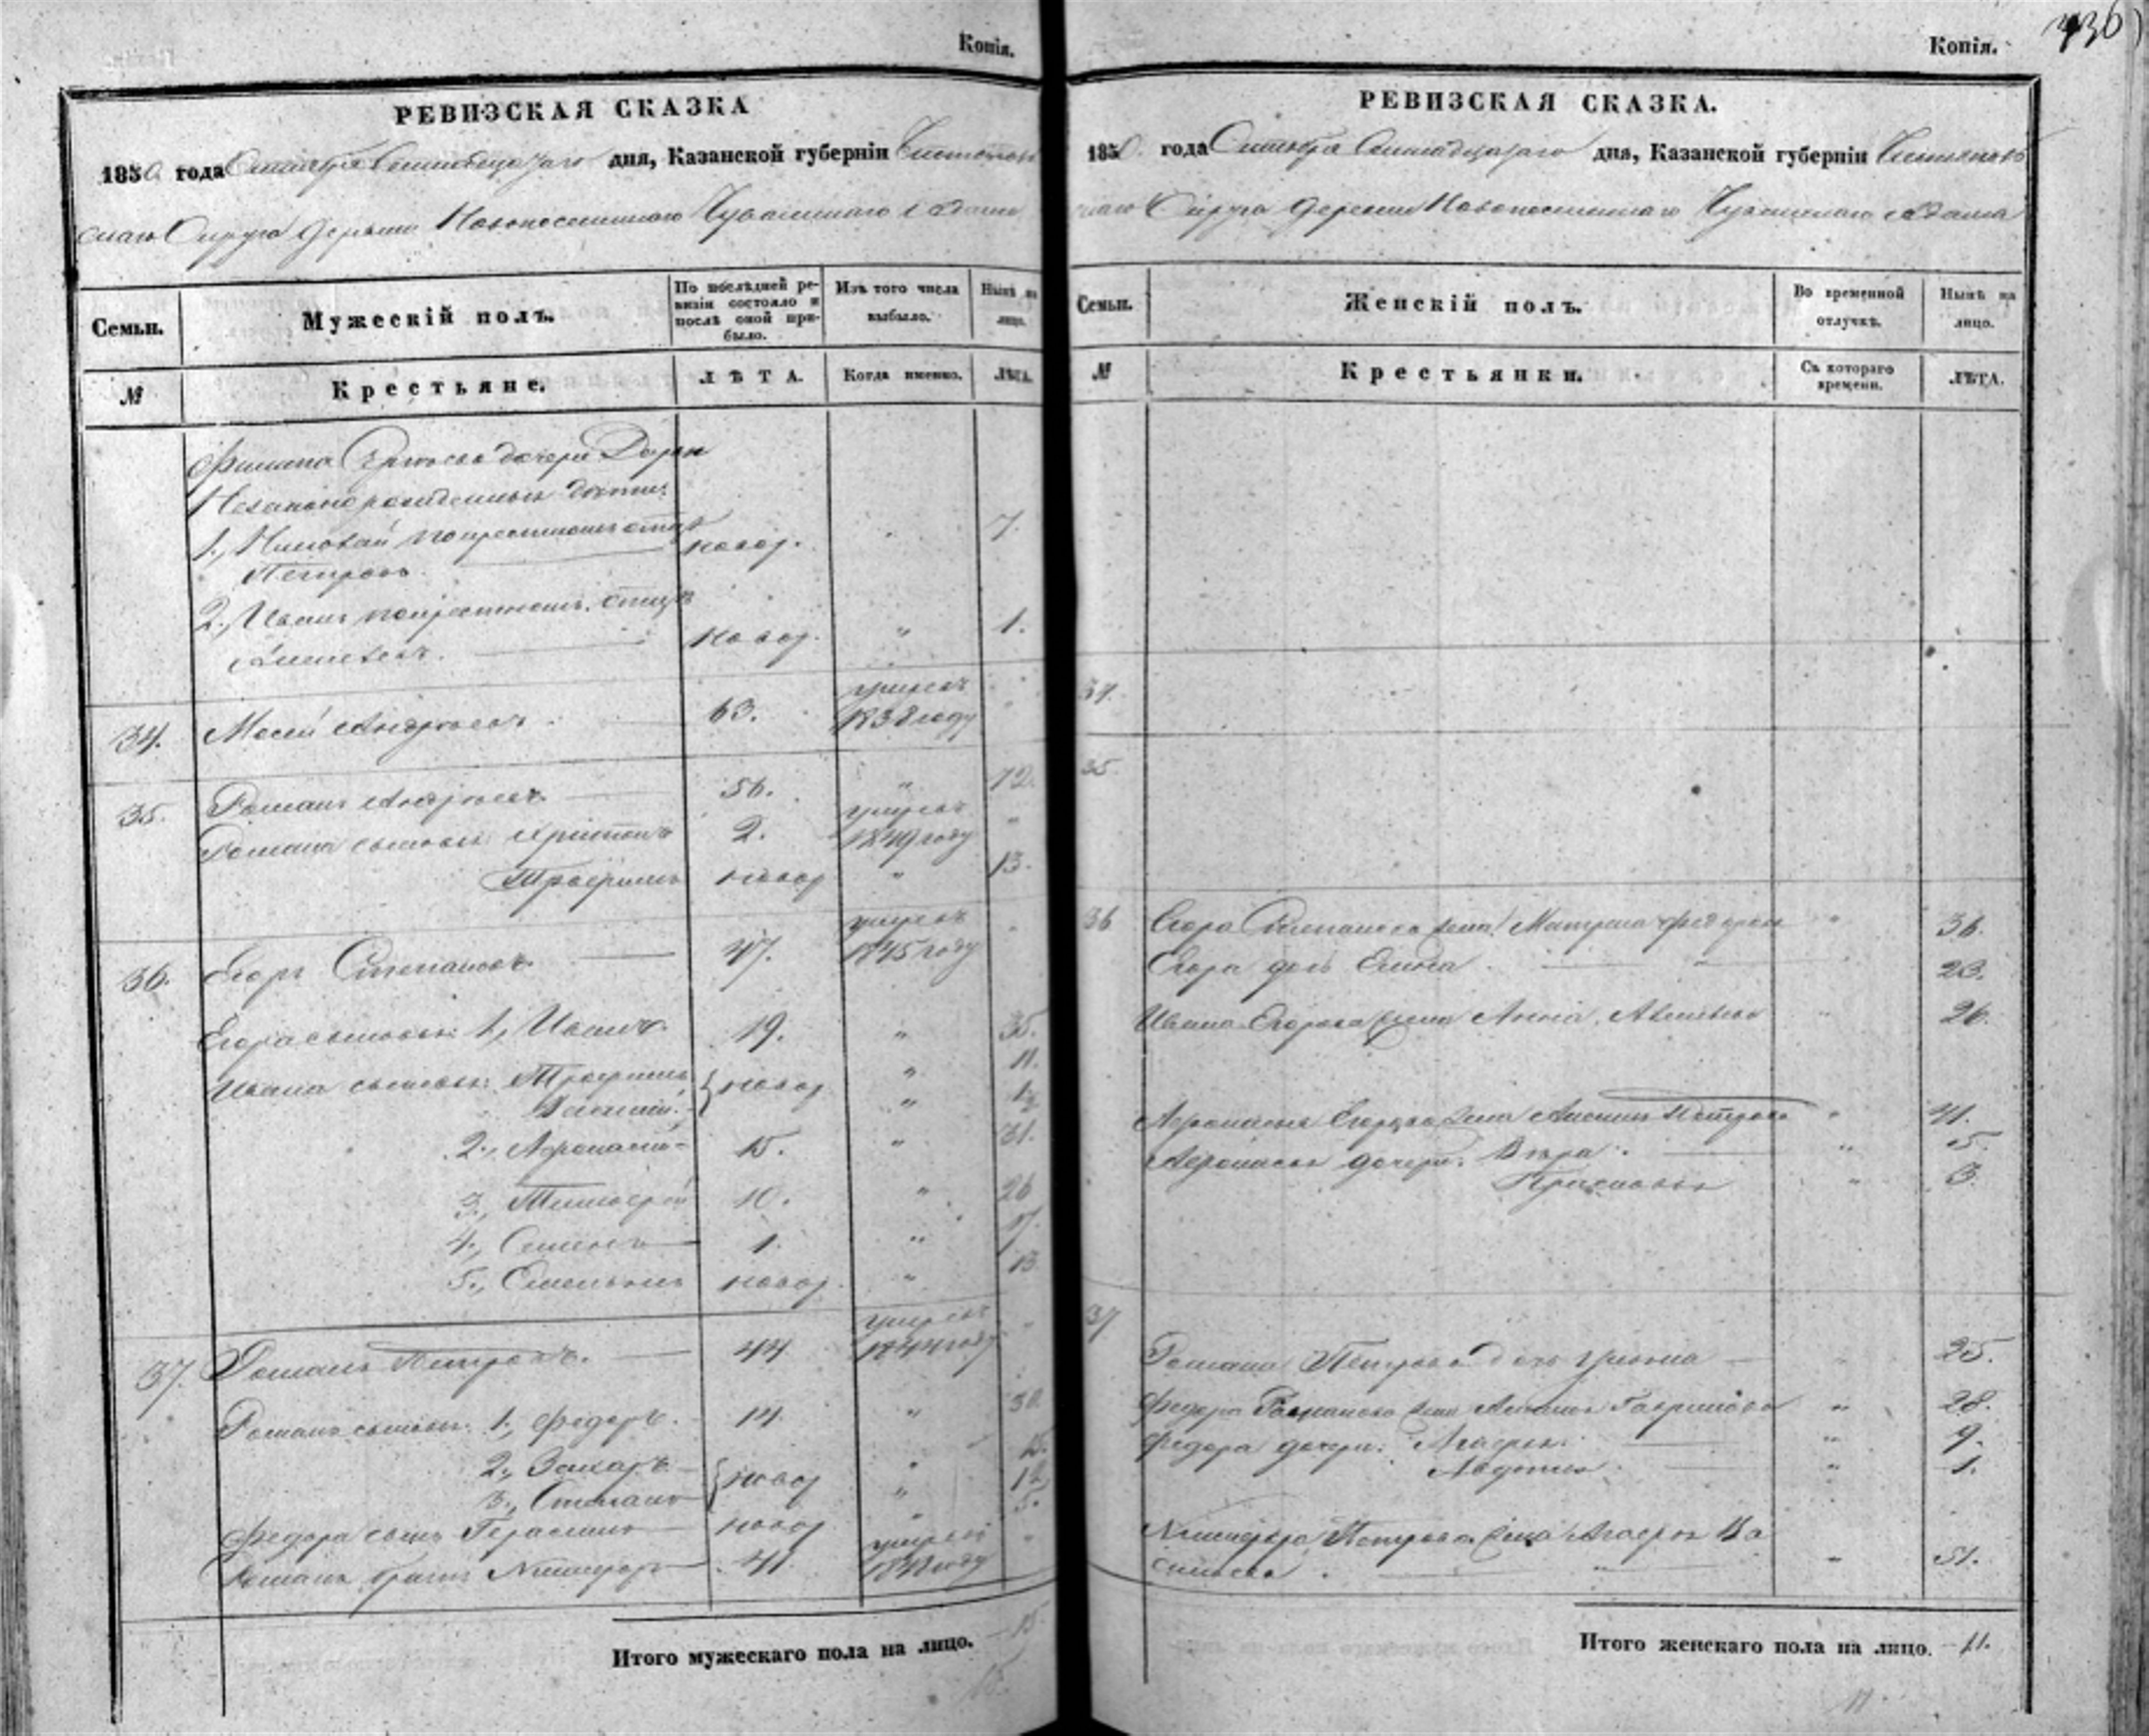 Копія.
РЕВИЗСКАЯ СКАЗКА
1850 года Октября дня, Казанской губерніи Чистополь
скаго Округа деревни Новопоселеннаго Чувашскаго Адама
Семьи.
Мужескій полъ.
По послѣдней ре-
визіи состояло и
послѣ оной при-
было.
Изъ того числа
выбыло.
Нынѣ на
лицо.
№
Крестьяне.
ЛѢТА.
Когда именно.
ЛѢТА.
Филипа дочери Дарьи
Незаконорожденныя дѣти:
1., Николай по крестному отцу новор. 7.
Петровъ.
2., Иванъ по крестному отцу
Алексѣевъ. новор. " 1.
умре въ
34. Мосей Андреевъ. 63. 1838 году
35. Романъ Андреевъ. 56. " 72.
умре въ
Романа сыновья: Аристонъ 2. 1849 году "
Трофимъ новор " 13.
умре въ
36. Егоръ Степановъ. 47. 1845 году
Егора сыновья: 1., Иванъ. 19. " 35.
Ивана сыновья: Трофимъ новор " 11.
Василій. " 1/2
2., Афонасій 15. " 31.
3., Тимофей 10. " 26
4., Семенъ 1. " 17.
5., Емельянъ новор. " 13
умре въ
37. Романъ Петровъ. 44 1844 году
Романа сыновья: 1., Федоръ. 14 " 30.
2., Захаръ " 15.
3., Степанъ новор " 12
Федора сынъ Герасимъ новор " 5.
умре въ
Романа братъ Никифоръ 41. году "
Итого мужескаго пола на лицо. 15.
15.
436
Копія.
РЕВИЗСКАЯ СКАЗКА.
1850 года Октября дня, Казанской губерніи Чистополь
скаго Округа деревни Новопоселеннаго Чувашскаго Адама
Семьи.
Женскій полъ.
Во временной
отлучкѣ.
Нынѣ на
лицо.
№
Крестьянки.
Съ котораго
времени.
ЛѢТА.
34.
35.
36 Егора Степанова жена Матрена Федорова " 56.
Егора дочь Елена " 23.
Ивана Егорова жена Анна Алексѣева " 26.
Афонасья Егорова жена Петрова " 41.
Афонасья дочери: Вѣра. " 5.
Прасковья " 3.
37
Романа Петрова дочь Ульяна " 25.
Федора Романова жена Гаврилова " 28.
Федора дочери: Агафья " 9.
Авдотья " 1.
Никифора Петрова жена Агафья Ва
сильева. " 51.
Итого женскаго пола на лицо. 11.
11.